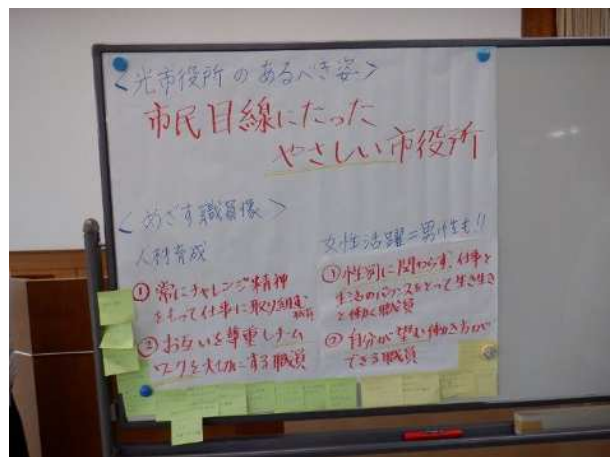 ＜光市役所のあるべき姿＞
市民目線にたった
やさしい市役所
＜めざす職員像＞
人材育成
① 常にチャレンジ精神
をもって仕事に取り組む職員
② お互いを尊重しチーム
ワークを大切にする職員
女性活躍=男性も!!
① 性別に関わらず、仕事と
生活のバランスをとって生き生き
と働く職員
② 自分が望む働き方が
できる職員